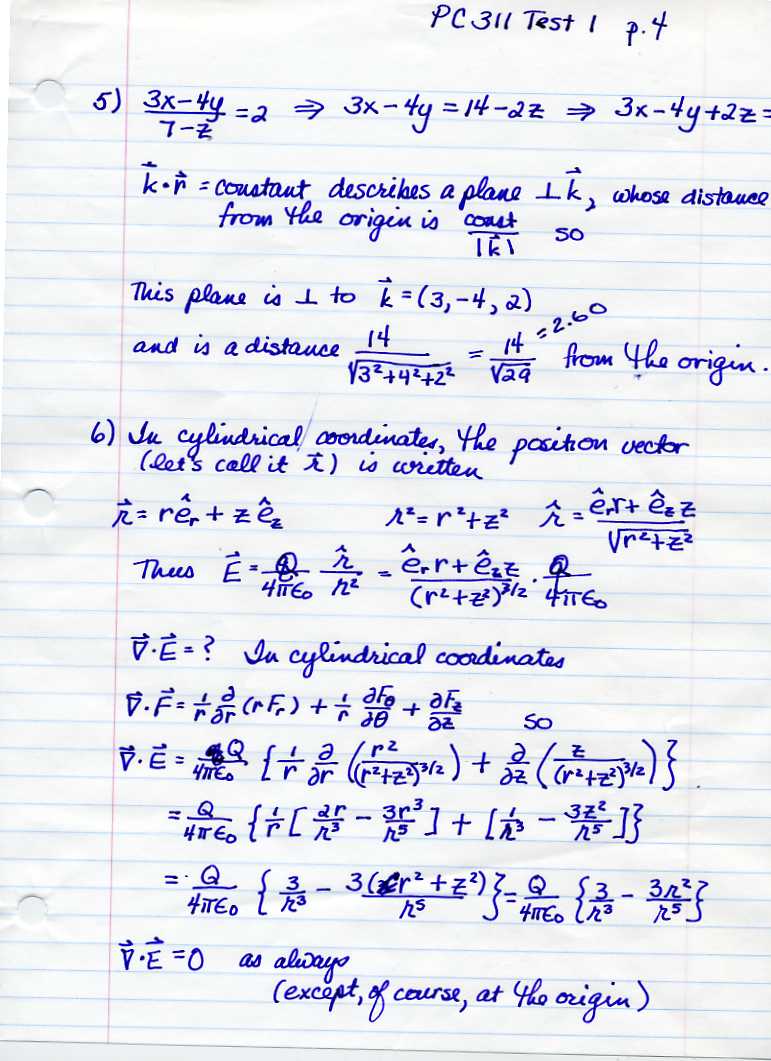 PC311 Test 1 p.4
5) (3x-4y)/(7-z) = 2 ⇒ 3x-4y = 14-2z ⇒ 3x-4y+2z =
k⃗·r⃗ = constant describes a plane ⊥ k⃗, whose distance
from the origin is const/|k⃗| so
This plane is ⊥ to k⃗ = (3,-4,2)
and is a distance 14/√(3²+4²+2²) = 14/√29 = 2.60 from the origin.
6) In cylindrical coordinates, the position vector
(let's call it 𝓇⃗) is written
𝓇⃗ = rê_r + zê_z 𝓇² = r²+z² 𝓇̂ = (ê_r r + ê_z z)/√(r²+z²)
Thus E⃗ = Q/(4πε₀) 𝓇̂/𝓇² = (ê_r r + ê_z z)/(r²+z²)^(3/2) · Q/(4πε₀)
∇⃗·E⃗ = ? In cylindrical coordinates
∇⃗·F⃗ = 1/r ∂/∂r (rF_r) + 1/r ∂F_θ/∂θ + ∂F_z/∂z so
∇⃗·E⃗ = Q/(4πε₀) {1/r ∂/∂r (r²/(r²+z²)^(3/2)) + ∂/∂z (z/(r²+z²)^(3/2))}
= Q/(4πε₀) {1/r [2r/𝓇³ - 3r³/𝓇⁵] + [1/𝓇³ - 3z²/𝓇⁵]}
= Q/(4πε₀) {3/𝓇³ - 3(r²+z²)/𝓇⁵} = Q/(4πε₀) {3/𝓇³ - 3𝓇²/𝓇⁵}
∇⃗·E⃗ = 0 as always
(except, of course, at the origin)